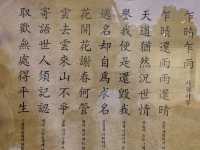 乍晴乍雨
乍晴還雨雨還晴
天道猶然況世情
譽我便是還毁我
逃名却自爲求名
花開花謝春何管
雲去雲來山不爭
寄語世人須記認
取歡無處得平生